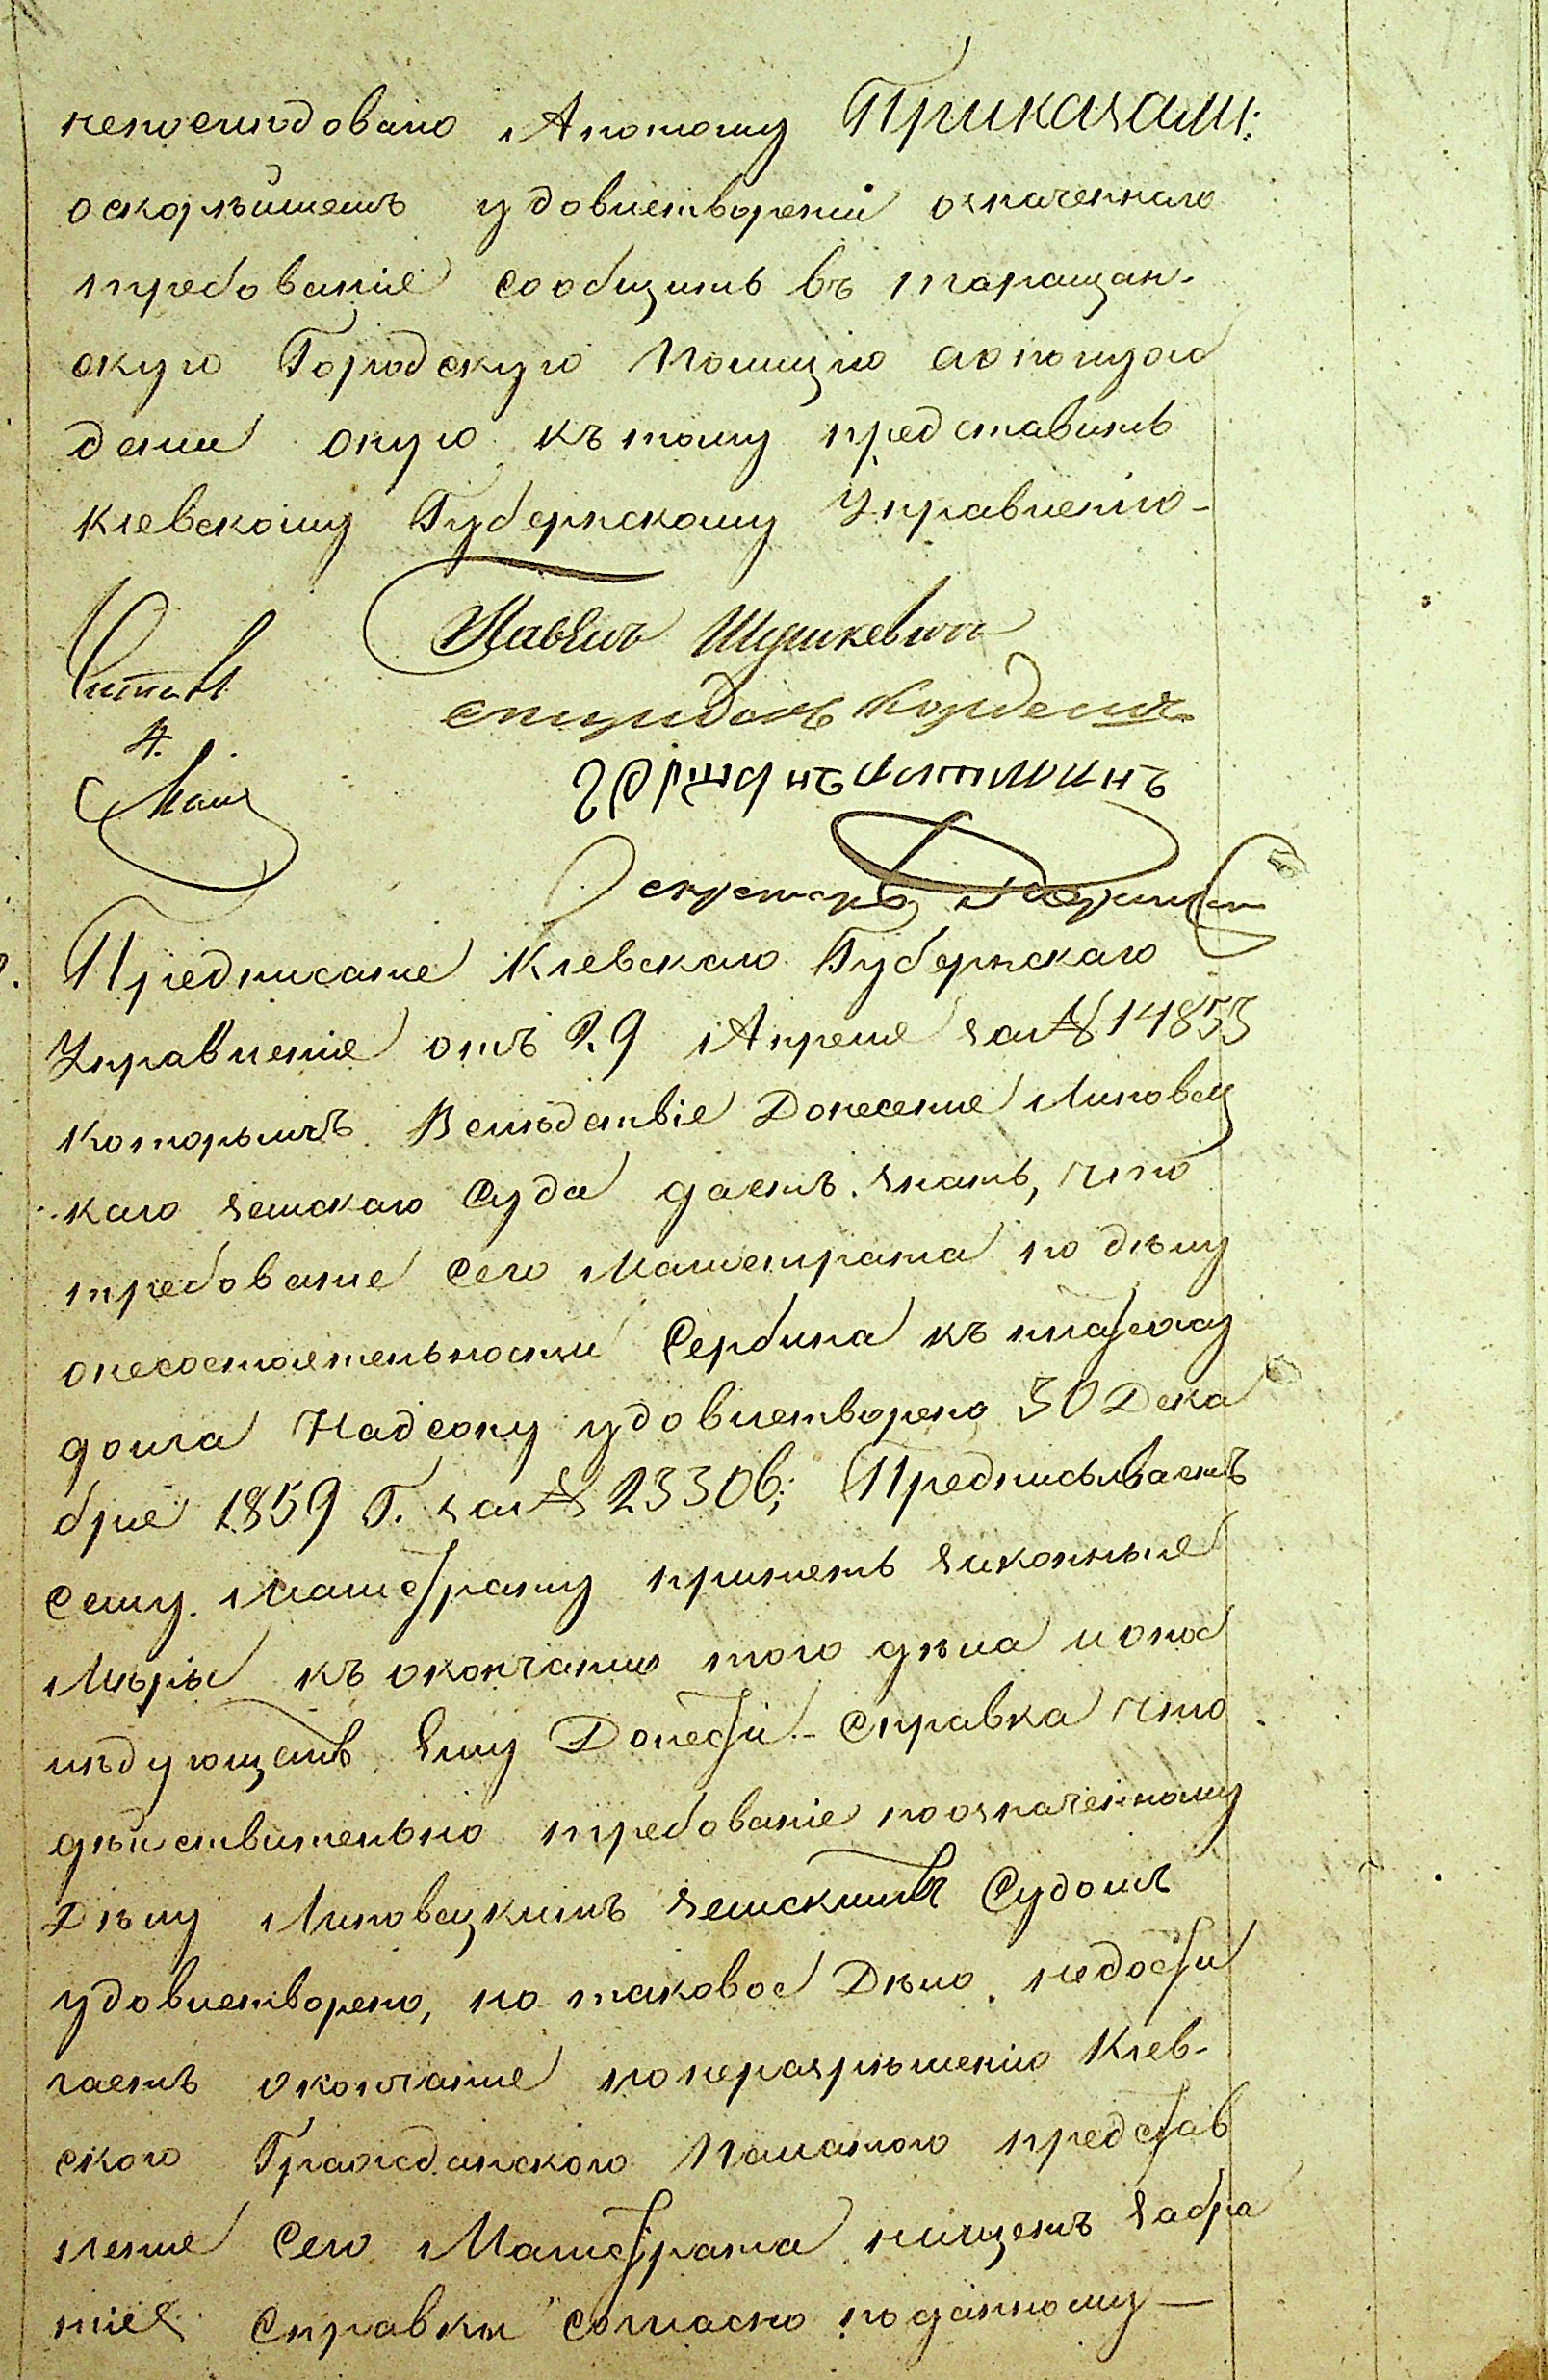 непослидовано Апотому Приказали:
оскорѣйшемъ удовлетвореніи означеннаго
требованіе сообщить въ таращан-
скую Городскую Полицію
окую къ тому представить
Кіевскому Губернскому Управленію-
Читалъ Павелъ Шушкевичъ
спиридонъ
4.
Маія
Секретарь
Предписаніе Кіевскаго Губернскаго
Управленіе отъ 29 Апреля за № 14853
которымъ Вслѣдствіе Донесеніе Липовец
каго земскаго Суда даетъ знать, что
требованіе Сего Магистрата по дѣлу
онесостоятельности Сербина къ платежу
долга Надсону удовлетворено 30 Дека
бря 1859 Г. за № 23306; Предписываетъ
Сему Магистрату принять законные
Мѣры къ окончанию того дѣла ипос
лѣдующемъ Ему Донести.- Справка что
дѣйствительно требованіе поозначенному
Дѣлу Липовецкимъ земскимъ Судомъ
удовлетворено, но таковое Дѣло недости
гаетъ окончаніе понеразрѣшенію Кіев-
ского Гражданского Палатою представ
леніе Сего Магистрата
Справки согласно поданному—